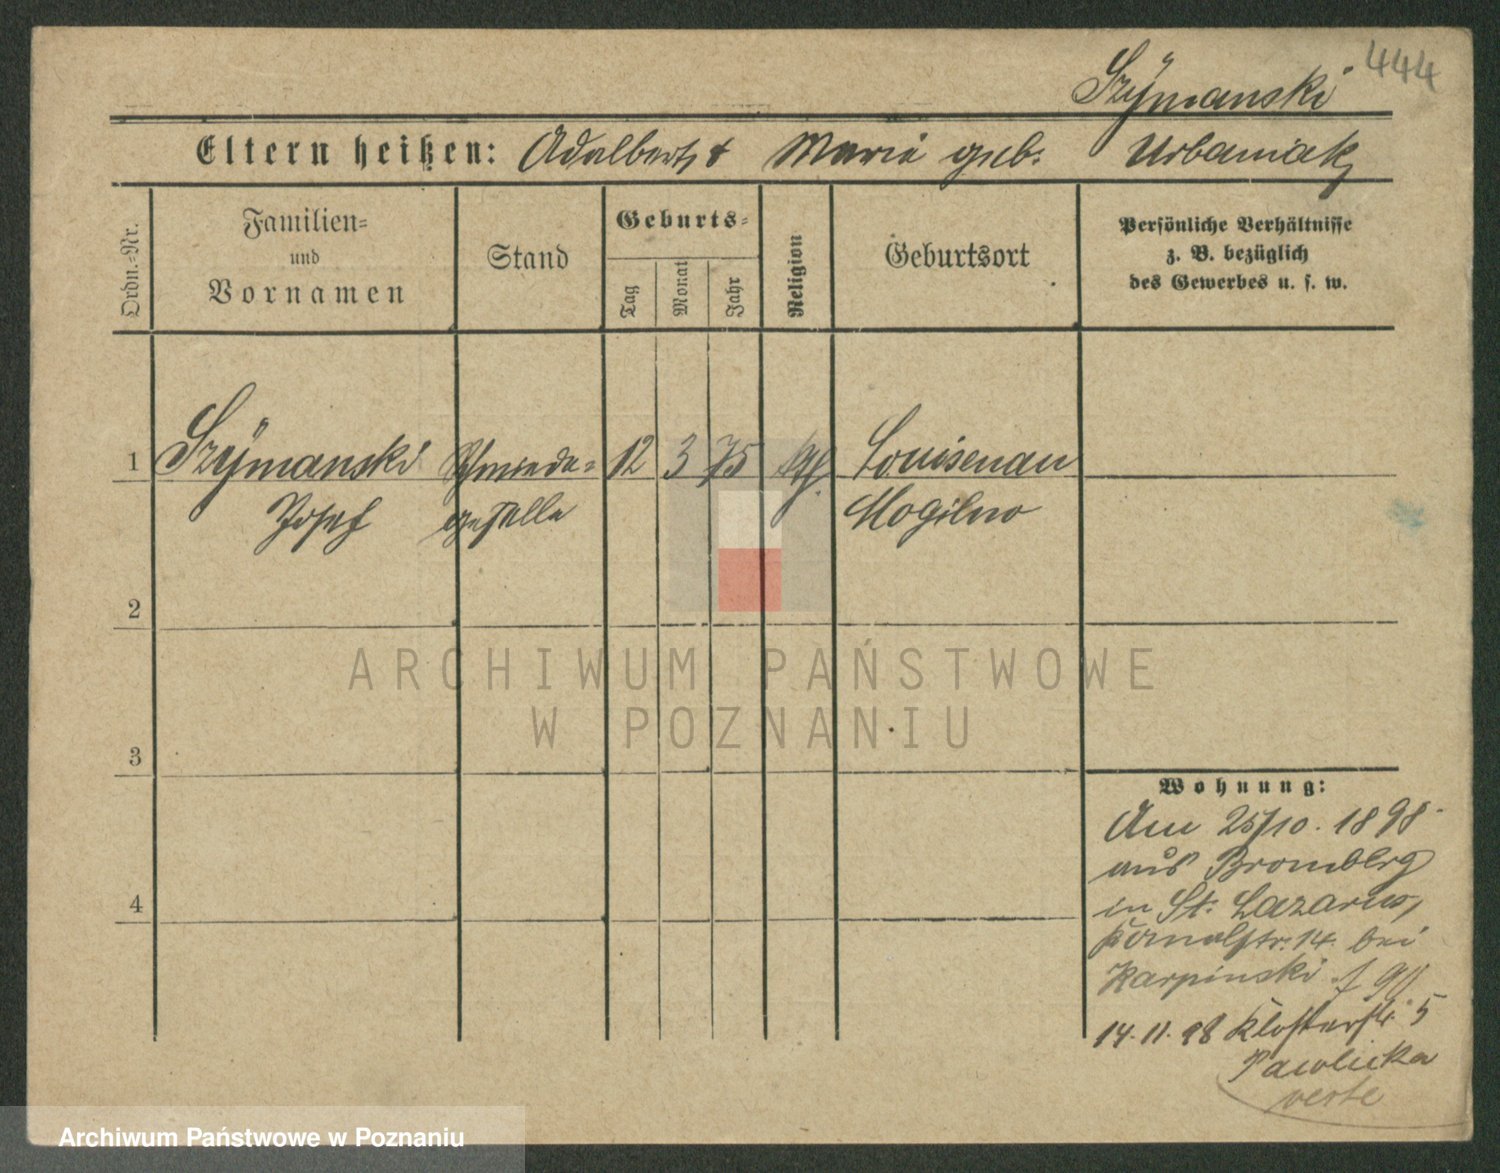 444
Szÿmanski
Eltern heißen: Adalbert, & Marie geb. Urbaniak
Ordn.-Nr.
Familien-
und
Vornamen
Stand
Geburts-
Tag
Monat
Jahr
Religion
Geburtsort
Persönliche Verhältnisse
z. B. bezüglich
des Gewerbes u. s. w.
1 Szÿmanski Schmiede- 12 3 75 Louisenau
Josef geselle Mogilno
2
3
4
Wohnung:
Am 25/10. 1898
aus Bromberg
in St. Lazarus,
14. bei
Karpinski
14.11.98 Klosterstr. 5
Pawlicka
verte
ARCHIWUM PAŃSTWOWE
W POZNANIU
Archiwum Państwowe w Poznaniu